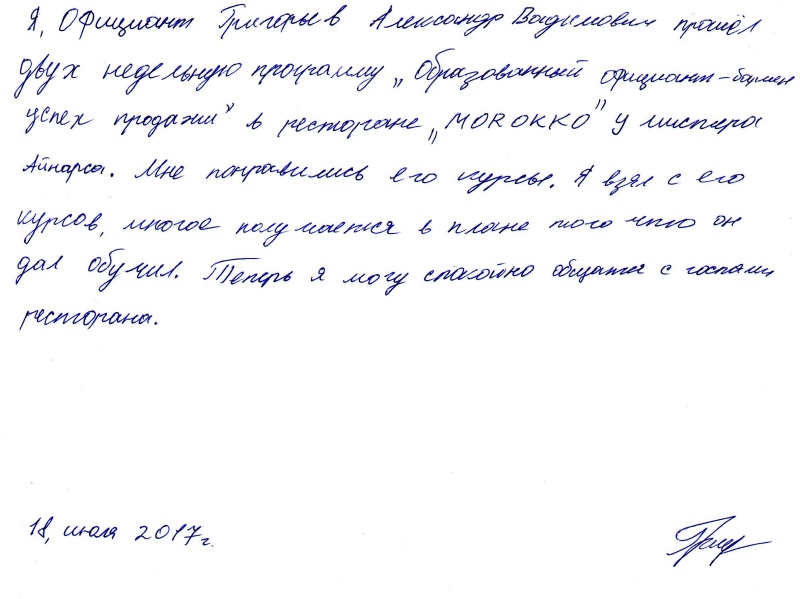 Я, Официант Григорьев Александр Вадимович прошёл
двух недельную программу „Образованный официант-бармен
успех продажи" в ресторане „MOROKKO" у мистера
Айнарса. Мне понравились его курсы. Я взял с его
курсов, многое получается в плане того что он
дал обучил. Теперь я могу спокойно общатся с гостями
ресторана.
18, июля 2017г.